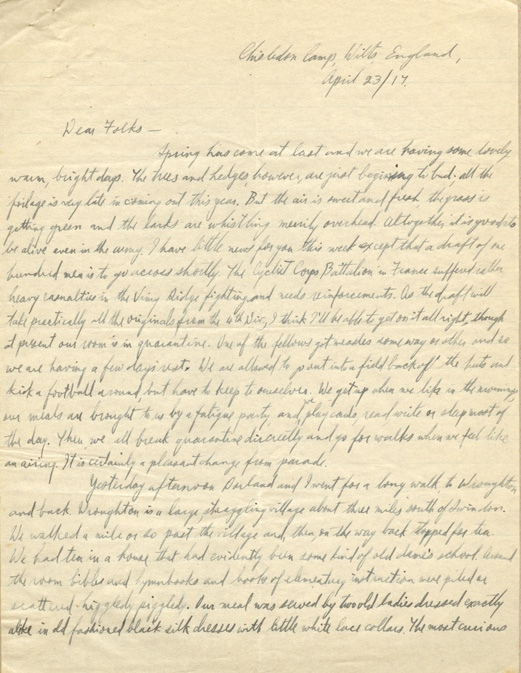 Chisledon Camp, Wilts, England,
April 23/17.
Dear Folks —
Spring has come at last and we are having some lovely
warm, bright days. The trees and hedges, however, are just beginning to bud - all the
foliage is very late in coming out this year. But the air is sweet and fresh the grass is
getting green and the larks are whistling merrily overhead. Altogether it is good to
be alive even in the army. I have little news for you this week except that a draft of one
hundred men is to go across shortly. The Cyclist Corps Battalion in France suffered rather
heavy casualties in the Vimy Ridge fighting and needs reinforcements. As the draft will
take practically all the originals from the 4th Div, I think I'll be able to get on it all right, though
at present our room is in quarantine. One of the fellows got measles some way or other and so
we are having a few days rest. We are allowed to go out into a field back of the huts and
kick a football around but have to keep to ourselves. We get up when we like in the morning,
our meals are brought to us by a fatigue party, and we play cards, read write or sleep most of
the day. Then we all break quarantine discreetly and go for walks when we feel like
an airing. It is certainly a pleasant change from parade.
Yesterday afternoon and I went for a long walk to Wroughton
and back. Wroughton is a large, straggling village about three miles south of Swindon.
We walked a mile or so past the village and then on the way back stopped for tea.
We had tea in a house that had evidently been some kind of old dame's school. Around
the room bibles and hymnbooks and books of elementary instruction were piled or
scattered higgledy piggledy. Our meal was served by two old ladies dressed exactly
alike in old fashioned black silk dresses with little white lace collars. The most curious